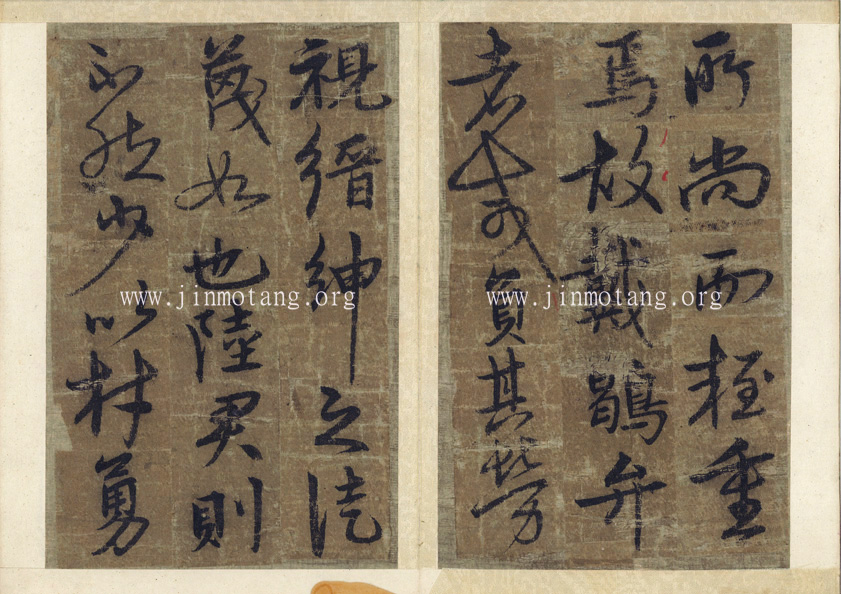 所尚而輕重
焉故戴鶡弁
者或負其勞
視縉紳之徒
蔑如也陸君則
不然少以材勇
www.jinmotang.org
www.jinmotang.org